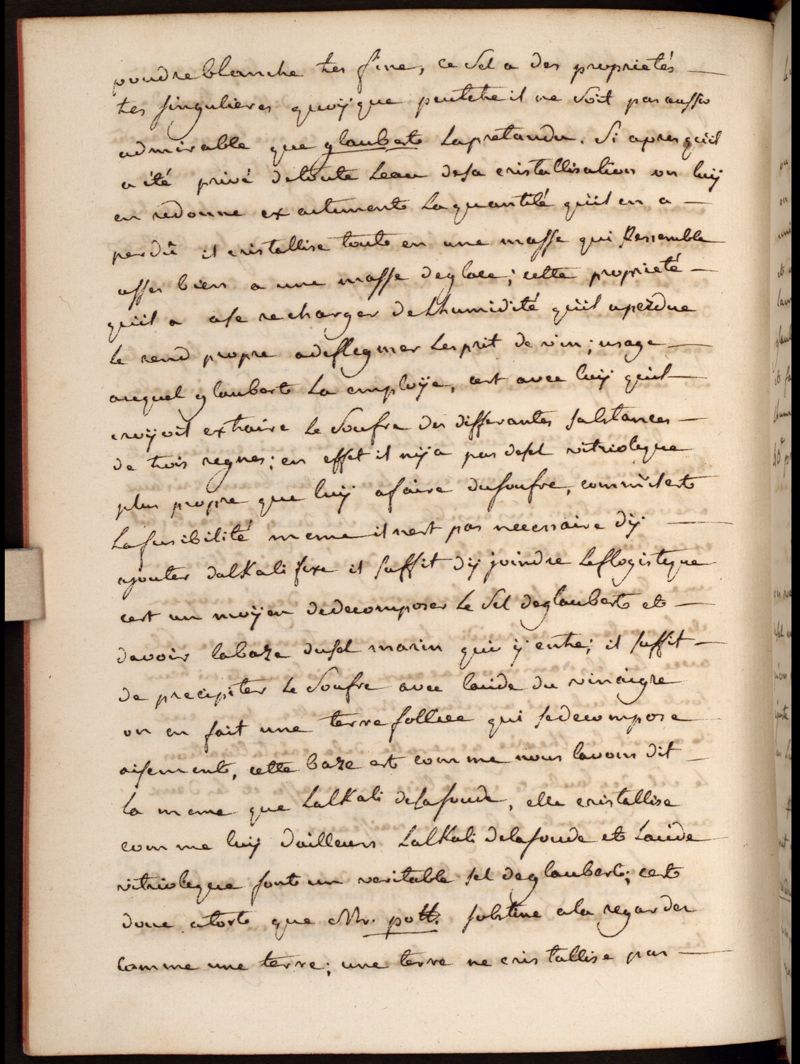 poudre blanche tres fine, ce sel a des proprietés
tres singulieres quoyque peutetre il ne soit pas aussi
admirable que glauberts la pretandu. Si apres qu'il
a été privé de toute leau de sa cristallisation on luy
en redonne exactements la quantité qu'il en a
perdû il cristallise toute en une masse qui Ressemble
asses bien a une masse de glace; cette proprieté
qu'il a a se recharger de Lhumidité qu'il a perdue
le rend propre a deflegmer lesprit de vin; usage
auquel glauberts la employe, cest avec luy qu'il
croyoit extraire le soufre des differantes substances
de trois regnes; en effet il ny a pas de sel vitriolique
plus propre que luy a faire du soufre, comm'il est
la fusibilité meme il nest pas necessaire dy
ajouter dalkali fixe il suffit dy joindre le flogistique
cest un moyen de decomposer le sel de glauberts et
davoir la baze du sel marin qui y entre; il suffit
de precipiter le soufre avec lacide du vinaigre
on en fait une terre folliee qui se decompose
aisements, cette baze est comme nous lavons dit
la meme que Lalkali de la soude, elle cristallise
comme luy dailleurs Lalkali de la soude et Lacide
vitriolique font un veritable sel de glauberts; cest
donc a torts que Mr. pott. sobstine a la regarder
comme une terre; une terre ne cristallise pas